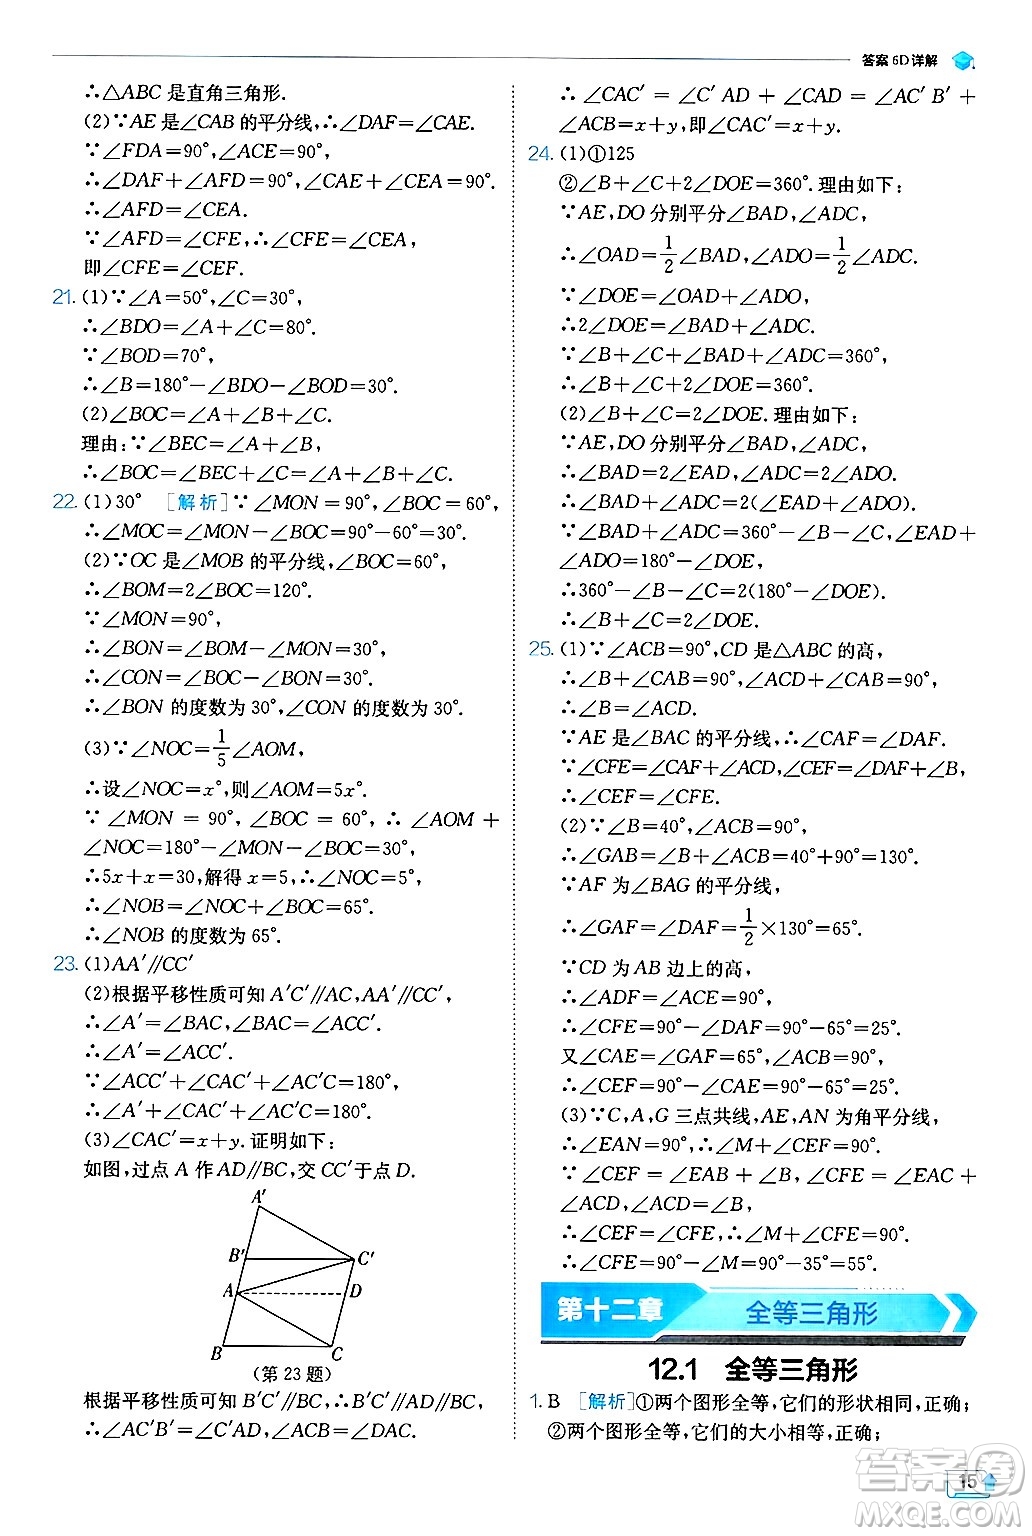 答案 6D 详解
∴△ABC 是直角三角形.
(2)∵AE 是∠CAB 的平分线,∴∠DAF=∠CAE.
∵∠FDA=90°,∠ACE=90°,
∴∠DAF+∠AFD=90°,∠CAE+∠CEA=90°.
∴∠AFD=∠CEA.
∵∠AFD=∠CFE,∴∠CFE=∠CEA,
即∠CFE=∠CEF.
21. (1)∵∠A=50°,∠C=30°,
∴∠BDO=∠A+∠C=80°.
∵∠BOD=70°,
∴∠B=180°-∠BDO-∠BOD=30°.
(2)∠BOC=∠A+∠B+∠C.
理由:∵∠BEC=∠A+∠B,
∴∠BOC=∠BEC+∠C=∠A+∠B+∠C.
22. (1)30° [解析]∵∠MON=90°,∠BOC=60°,
∴∠MOC=∠MON-∠BOC=90°-60°=30°.
(2)∵OC 是∠MOB 的平分线,∠BOC=60°,
∴∠BOM=2∠BOC=120°.
∵∠MON=90°,
∴∠BON=∠BOM-∠MON=30°,
∴∠CON=∠BOC-∠BON=30°.
∴∠BON 的度数为 30°,∠CON 的度数为 30°.
(3)∵∠NOC=1/5∠AOM,
∴设∠NOC=x°,则∠AOM=5x°.
∵∠MON=90°,∠BOC=60°,∴∠AOM+
∠NOC=180°-∠MON-∠BOC=30°,
∴5x+x=30,解得 x=5,∴∠NOC=5°,
∴∠NOB=∠NOC+∠BOC=65°.
∴∠NOB 的度数为 65°.
23. (1)AA′//CC′
(2)根据平移性质可知 A′C′//AC,AA′//CC′,
∴∠A′=∠BAC,∠BAC=∠ACC′.
∴∠A′=∠ACC′.
∵∠ACC′+∠CAC′+∠AC′C=180°,
∴∠A′+∠CAC′+∠AC′C=180°.
(3)∠CAC′=x+y.证明如下:
如图,过点 A 作 AD//BC,交 CC′于点 D.
A′
B′
C′
A
D
B
C
(第 23 题)
根据平移性质可知 B′C′//BC,∴B′C′//AD//BC,
∴∠AC′B′=∠C′AD,∠ACB=∠DAC.
∴∠CAC′=∠C′AD+∠CAD=∠AC′B′+
∠ACB=x+y,即∠CAC′=x+y.
24. (1)①125
②∠B+∠C+2∠DOE=360°.理由如下:
∵AE,DO 分别平分∠BAD,∠ADC,
∴∠OAD=1/2∠BAD,∠ADO=1/2∠ADC.
∵∠DOE=∠OAD+∠ADO,
∴2∠DOE=∠BAD+∠ADC.
∵∠B+∠C+∠BAD+∠ADC=360°,
∴∠B+∠C+2∠DOE=360°.
(2)∠B+∠C=2∠DOE.理由如下:
∵AE,DO 分别平分∠BAD,∠ADC,
∴∠BAD=2∠EAD,∠ADC=2∠ADO.
∴∠BAD+∠ADC=2(∠EAD+∠ADO).
∵∠BAD+∠ADC=360°-∠B-∠C,∠EAD+
∠ADO=180°-∠DOE,
∴360°-∠B-∠C=2(180°-∠DOE).
∴∠B+∠C=2∠DOE.
25. (1)∵∠ACB=90°,CD 是△ABC 的高,
∴∠B+∠CAB=90°,∠ACD+∠CAB=90°,
∴∠B=∠ACD.
∵AE 是∠BAC 的平分线,∴∠CAF=∠DAF.
∵∠CFE=∠CAF+∠ACD,∠CEF=∠DAF+∠B,
∴∠CEF=∠CFE.
(2)∵∠B=40°,∠ACB=90°,
∴∠GAB=∠B+∠ACB=40°+90°=130°.
∵AF 为∠BAG 的平分线,
∴∠GAF=∠DAF=1/2×130°=65°.
∵CD 为 AB 边上的高,
∴∠ADF=∠ACE=90°,
∴∠CFE=90°-∠DAF=90°-65°=25°.
又∠CAE=∠GAF=65°,∠ACB=90°,
∴∠CEF=90°-∠CAE=90°-65°=25°.
(3)∵C,A,G 三点共线,AE,AN 为角平分线,
∴∠EAN=90°,∴∠M+∠CEF=90°.
∵∠CEF=∠EAB+∠B,∠CFE=∠EAC+
∠ACD,∠ACD=∠B,
∴∠CEF=∠CFE,∴∠M+∠CFE=90°.
∴∠CFE=90°-∠M=90°-35°=55°.
第十二章 全等三角形
12.1 全等三角形
1. B [解析]①两个图形全等,它们的形状相同,正确;
②两个图形全等,它们的大小相等,正确;
15
答案圈
MXQE.COM